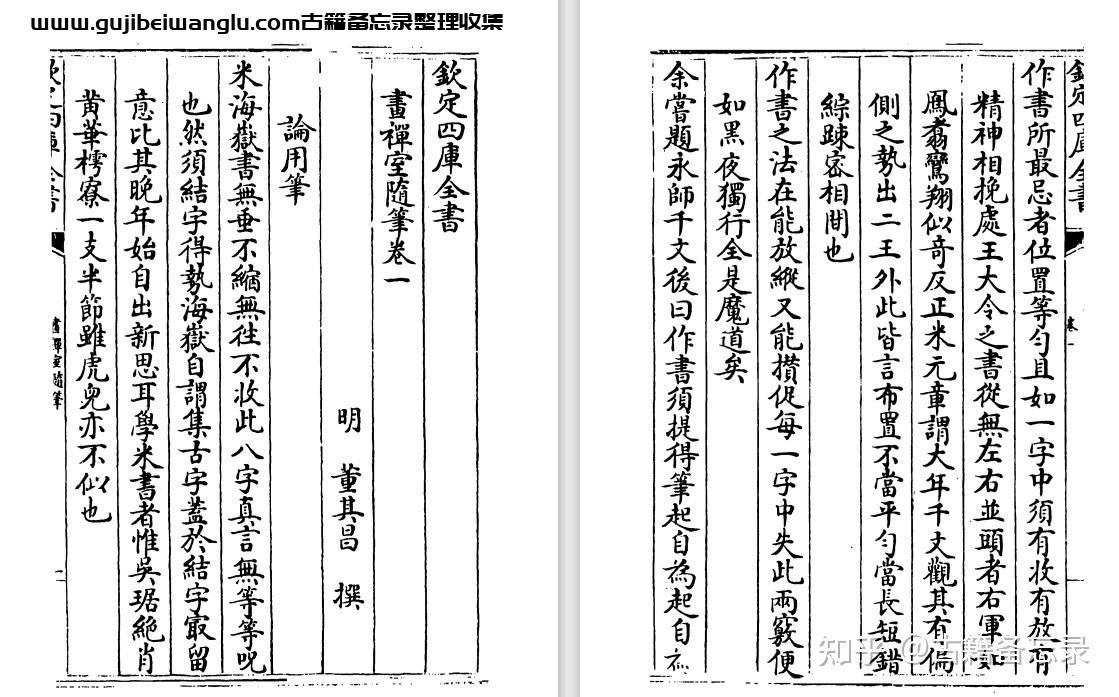 www.gujibeiwanglu.com古籍备忘录整理收集
欽定四庫全書
畫禪室隨筆卷一
明 董其昌 撰
論用筆
米海嶽書無垂不縮無往不收此八字真言無等等呪
也然須結字得勢海嶽自謂集古字蓋於結字㝡留
意比其晚年始自出新思耳學米書者惟吳琚絶肖
黄華樗寮一支半節雖虎兒亦不似也
畫禪室隨筆
欽定四庫全書
卷一
作書所最忌者位置等勻且如一字中須有收有放有
精神相挽處王大令之書從無左右並頭者右軍如
鳳翥鸞翔似奇反正米元章謂大年千文觀其有偏
側之勢出二王外此皆言布置不當平勻當長短錯
綜踈宻相間也
作書之法在能放縱又能攢促每一字中失此兩竅便
如黑夜獨行全是魔道矣
余嘗題永師千文後曰作書須提得筆起自為起自
知乎 @古籍备忘录